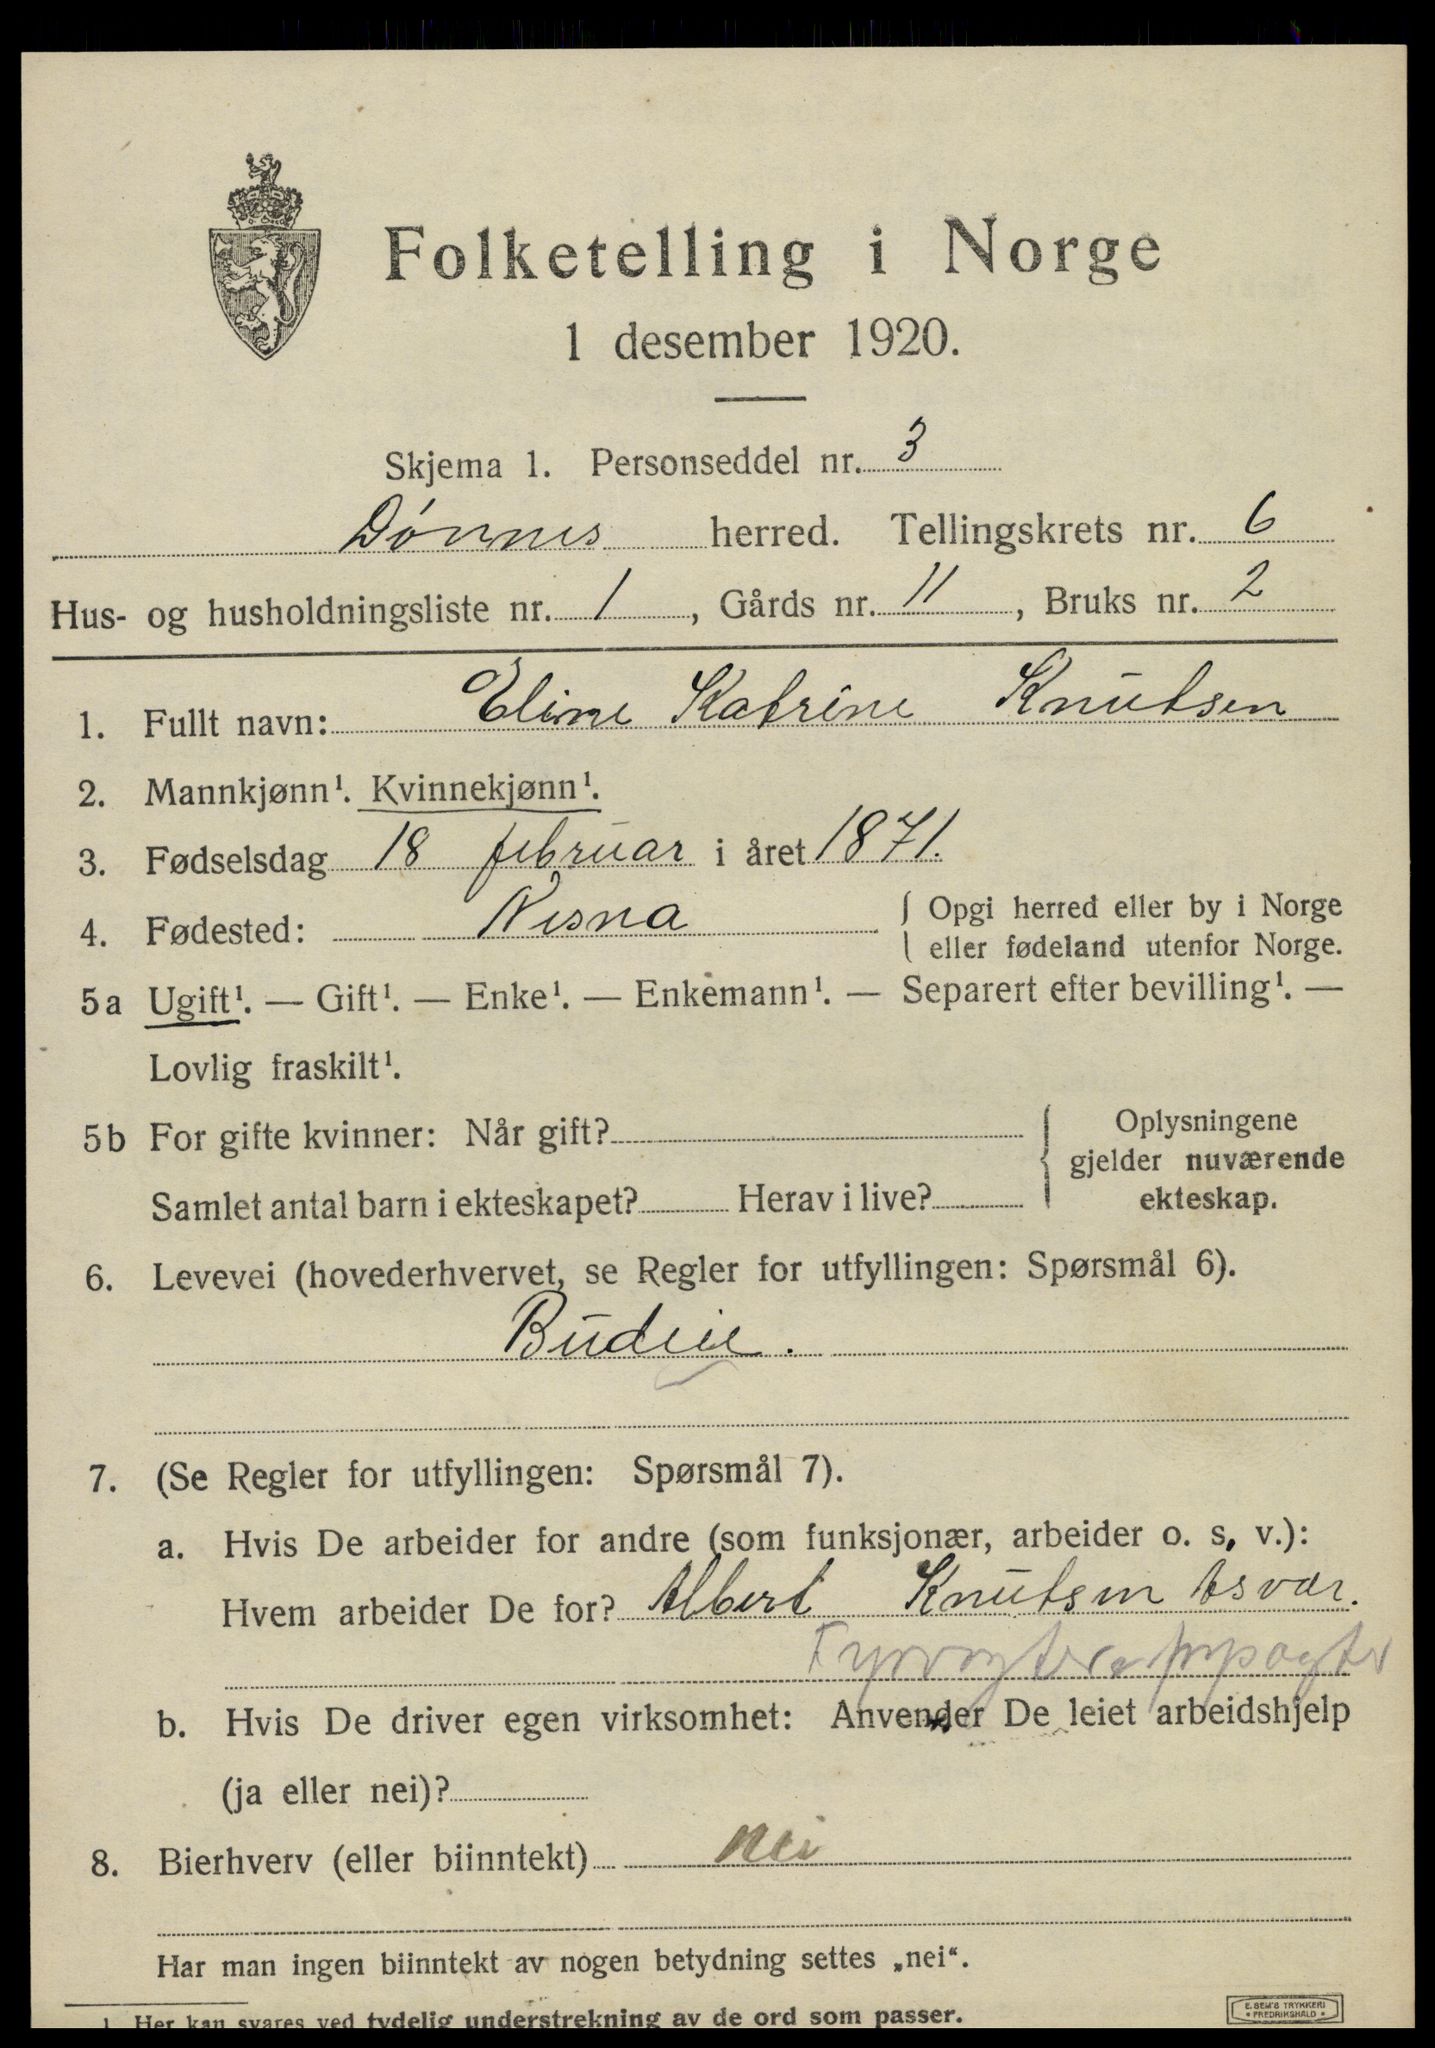 Folketelling i Norge
1 desember 1920.
Skjema 1. Personseddel nr. 3
Dønnes herred. Tellingskrets nr. 6
Hus- og husholdningsliste nr. 1, Gårds nr. 11, Bruks nr. 2
1. Fullt navn: Eline Katrine Knutsen
2. Mannkjønn¹. Kvinnekjønn¹.
3. Fødselsdag 18 februar i året 1871.
4. Fødested: Nesna { Opgi herred eller by i Norge
eller fødeland utenfor Norge.
5a Ugift¹. — Gift¹. — Enke¹. — Enkemann¹. — Separert efter bevilling¹. —
Lovlig fraskilt¹.
5b For gifte kvinner: Når gift?
Samlet antal barn i ekteskapet? Herav i live?
Oplysningene
gjelder nuværende
ekteskap.
6. Levevei (hovederhvervet, se Regler for utfyllingen: Spørsmål 6).
Budeie.
7. (Se Regler for utfyllingen: Spørsmål 7).
a. Hvis De arbeider for andre (som funksjonær, arbeider o. s. v.):
Hvem arbeider De for? Albert Knutsen Asvær.
b. Hvis De driver egen virksomhet: Anvender De leiet arbeidshjelp
(ja eller nei)?
8. Bierhverv (eller biinntekt) nei
Har man ingen biinntekt av nogen betydning settes „nei“.
1. Her kan svares ved tydelig understrekning av de ord som passer.
E. SEM'S TRYKKERI
• FREDRIKSHALD •